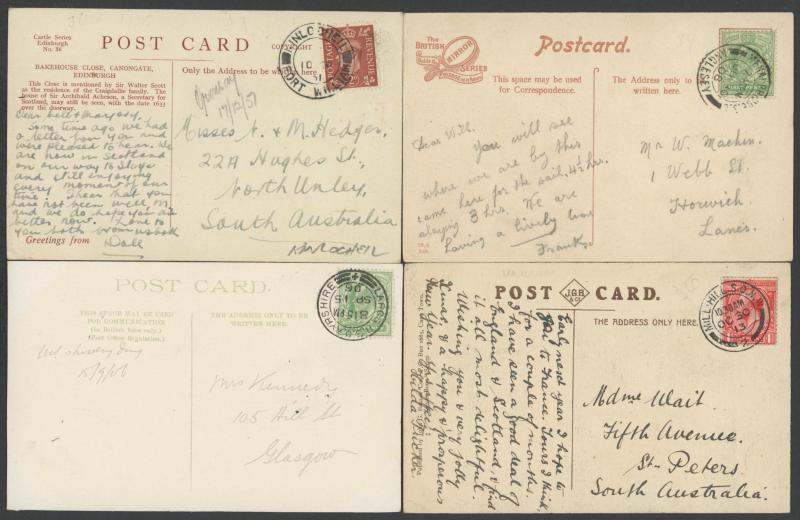 Castle Series
Edinburgh
No. 36
POST CARD
COPYRIGHT
BAKEHOUSE CLOSE, CANONGATE,
EDINBURGH
This Close is mentioned by Sir Walter Scott
as the residence of the Craigdallie family. The
house of Sir Archibald Acheson, a Secretary for
Scotland, may still be seen, with the date 1633
over the doorway.
Only the Address to be
KINLOCHEIL
FORT WILLIAM
POSTAGE REVENUE
17/10/51
Dear Nell & Margery,
Some time ago we had
a letter from you and
were pleased to hear. We
are now in Scotland
on our way to Skye
and still enjoying
every moment of our
time. I hear that you
have not been well, M,
and we do hope you are
better now. Love to
you both from us both
Greetings from
Doll
Misses N. & M. Hedges,
22A Hughes St,
North Unley,
South Australia
KINLOCHEIL
The
BRITISH
MIRROR
SERIES
Postcard.
This space may be used
for Correspondence.
The Address only to
written here.
ANGLESEY
Dear Will.
You will see
where we are by this
came here for the sail. 4½ hrs.
staying 3 hrs. We are
having a lively time
Frank.
Mr W. Machin.
1 Webb St.
Horwich
Lancs.
POST CARD.
THIS SPACE MAY BE USED
FOR COMMUNICATION
(In British Isles only.)
(Post Office Regulation.)
THE ADDRESS ONLY TO BE
WRITTEN HERE.
LARGS AYRSHIRE
8.15 PM
SP 15
06
15/9/06
Mrs Kennedy
105 Hill St
Glasgow
POST
J.G.B.
& Co
CARD.
THE ADDRESS ONLY HERE.
MILL-HILL S.O. N.W.
10.30 AM
OC 30
13
Early next year I hope to
go to France. Tours I think,
for a couple of months.
I have seen a good deal of
England & Scotland, & find
it all most delightful.
Wishing you a very jolly
Xmas, & a happy & prosperous
New Year.
Hilda Fricker
Mdme Wait
Fifth Avenue.
St. Peters
South Australia.